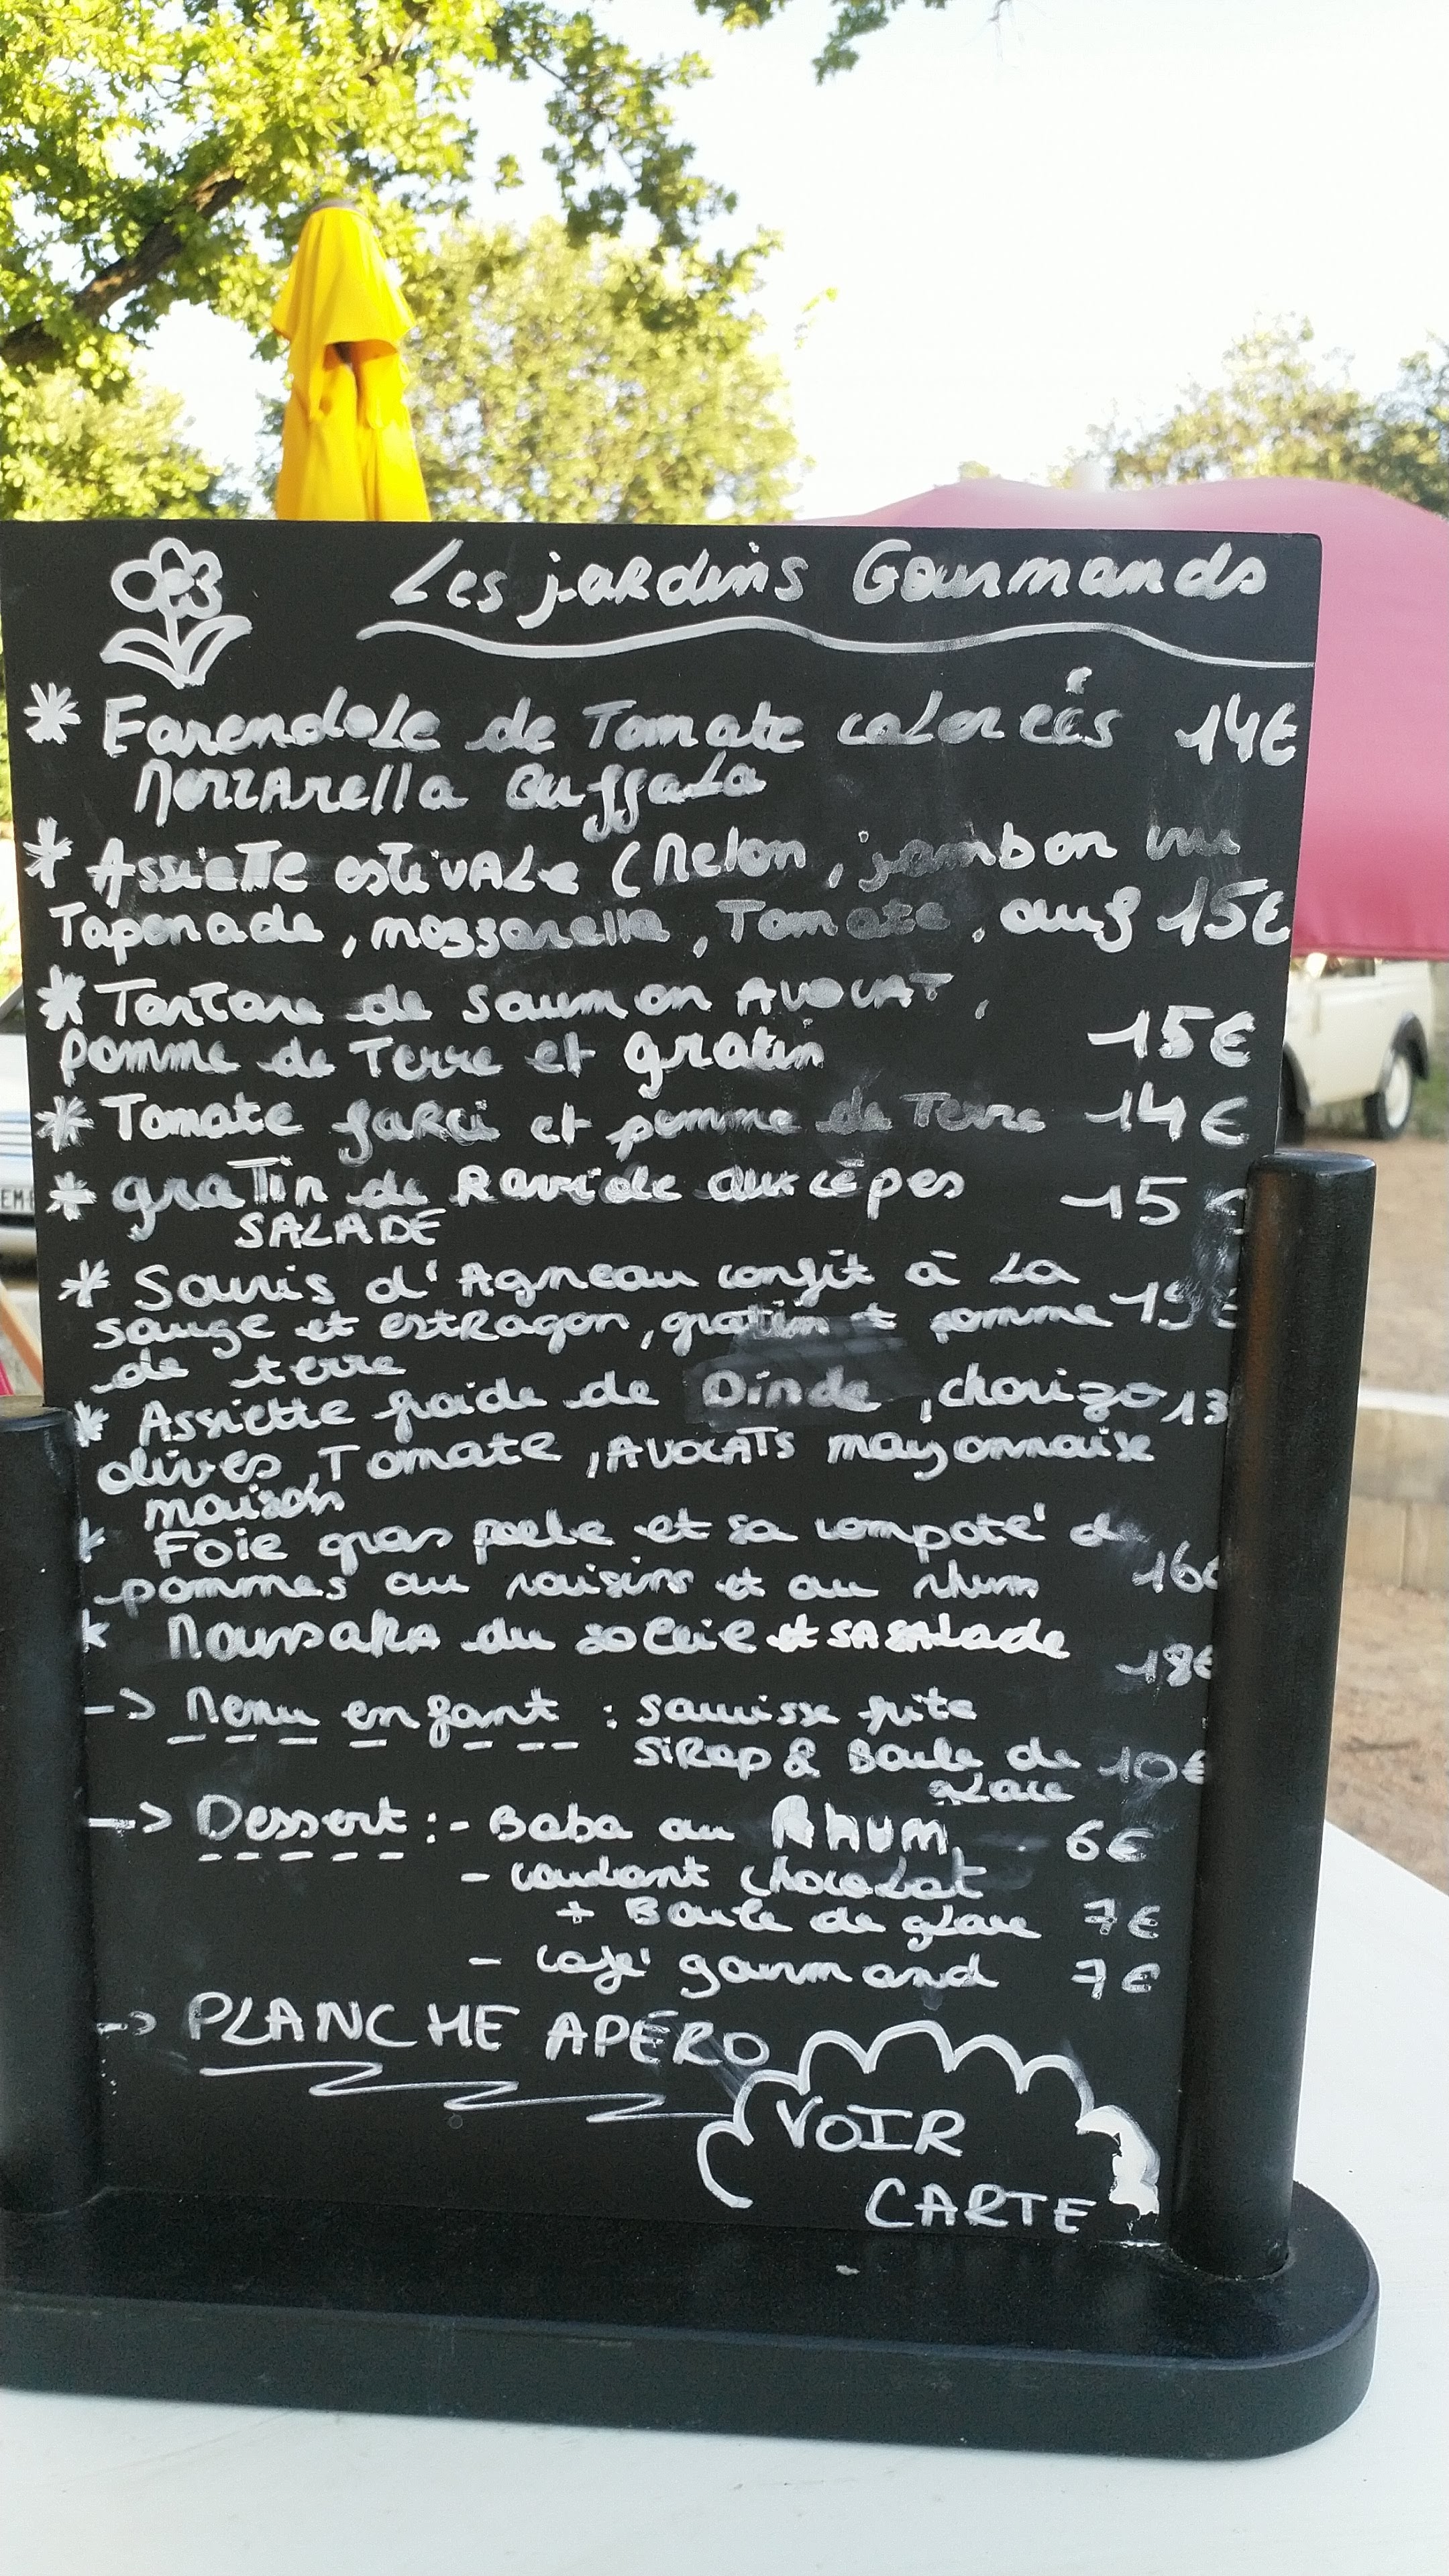 Les jardins Gourmands
* Farendole de Tomate coloreés 14€
Mozzarella Buffala
* Assiette estivale (Melon, jambon cru
Tapenade, mozzarella, Tomate, œuf 15€
* Tartare de saumon AVOCAT,
pomme de Terre et gratin 15€
* Tomate farci et pomme de Terre 14€
* graTin de Raviole aux cêpes 15€
SALADE
* Souris d'Agneau confit à La
sauge et estragon, gratin et pomme
de terre
* Assiette froide de Dinde, chorizo 13
olives, Tomate, AVOCATS mayonnaise
maison
* Foie gras poele et sa compoté d
pommes au raisins et au rhum 16€
* Moussaka du soleil et sa salade 18€
-> Menu enfant : sauisse frite
SiRop & Boule de 10€
glace
-> Dessert : - Baba au Rhum 6€
- coulant chocolat
+ Boule de glace 7€
- café gourmand 7€
-> PLANCHE APÉRO
VOIR
CARTE